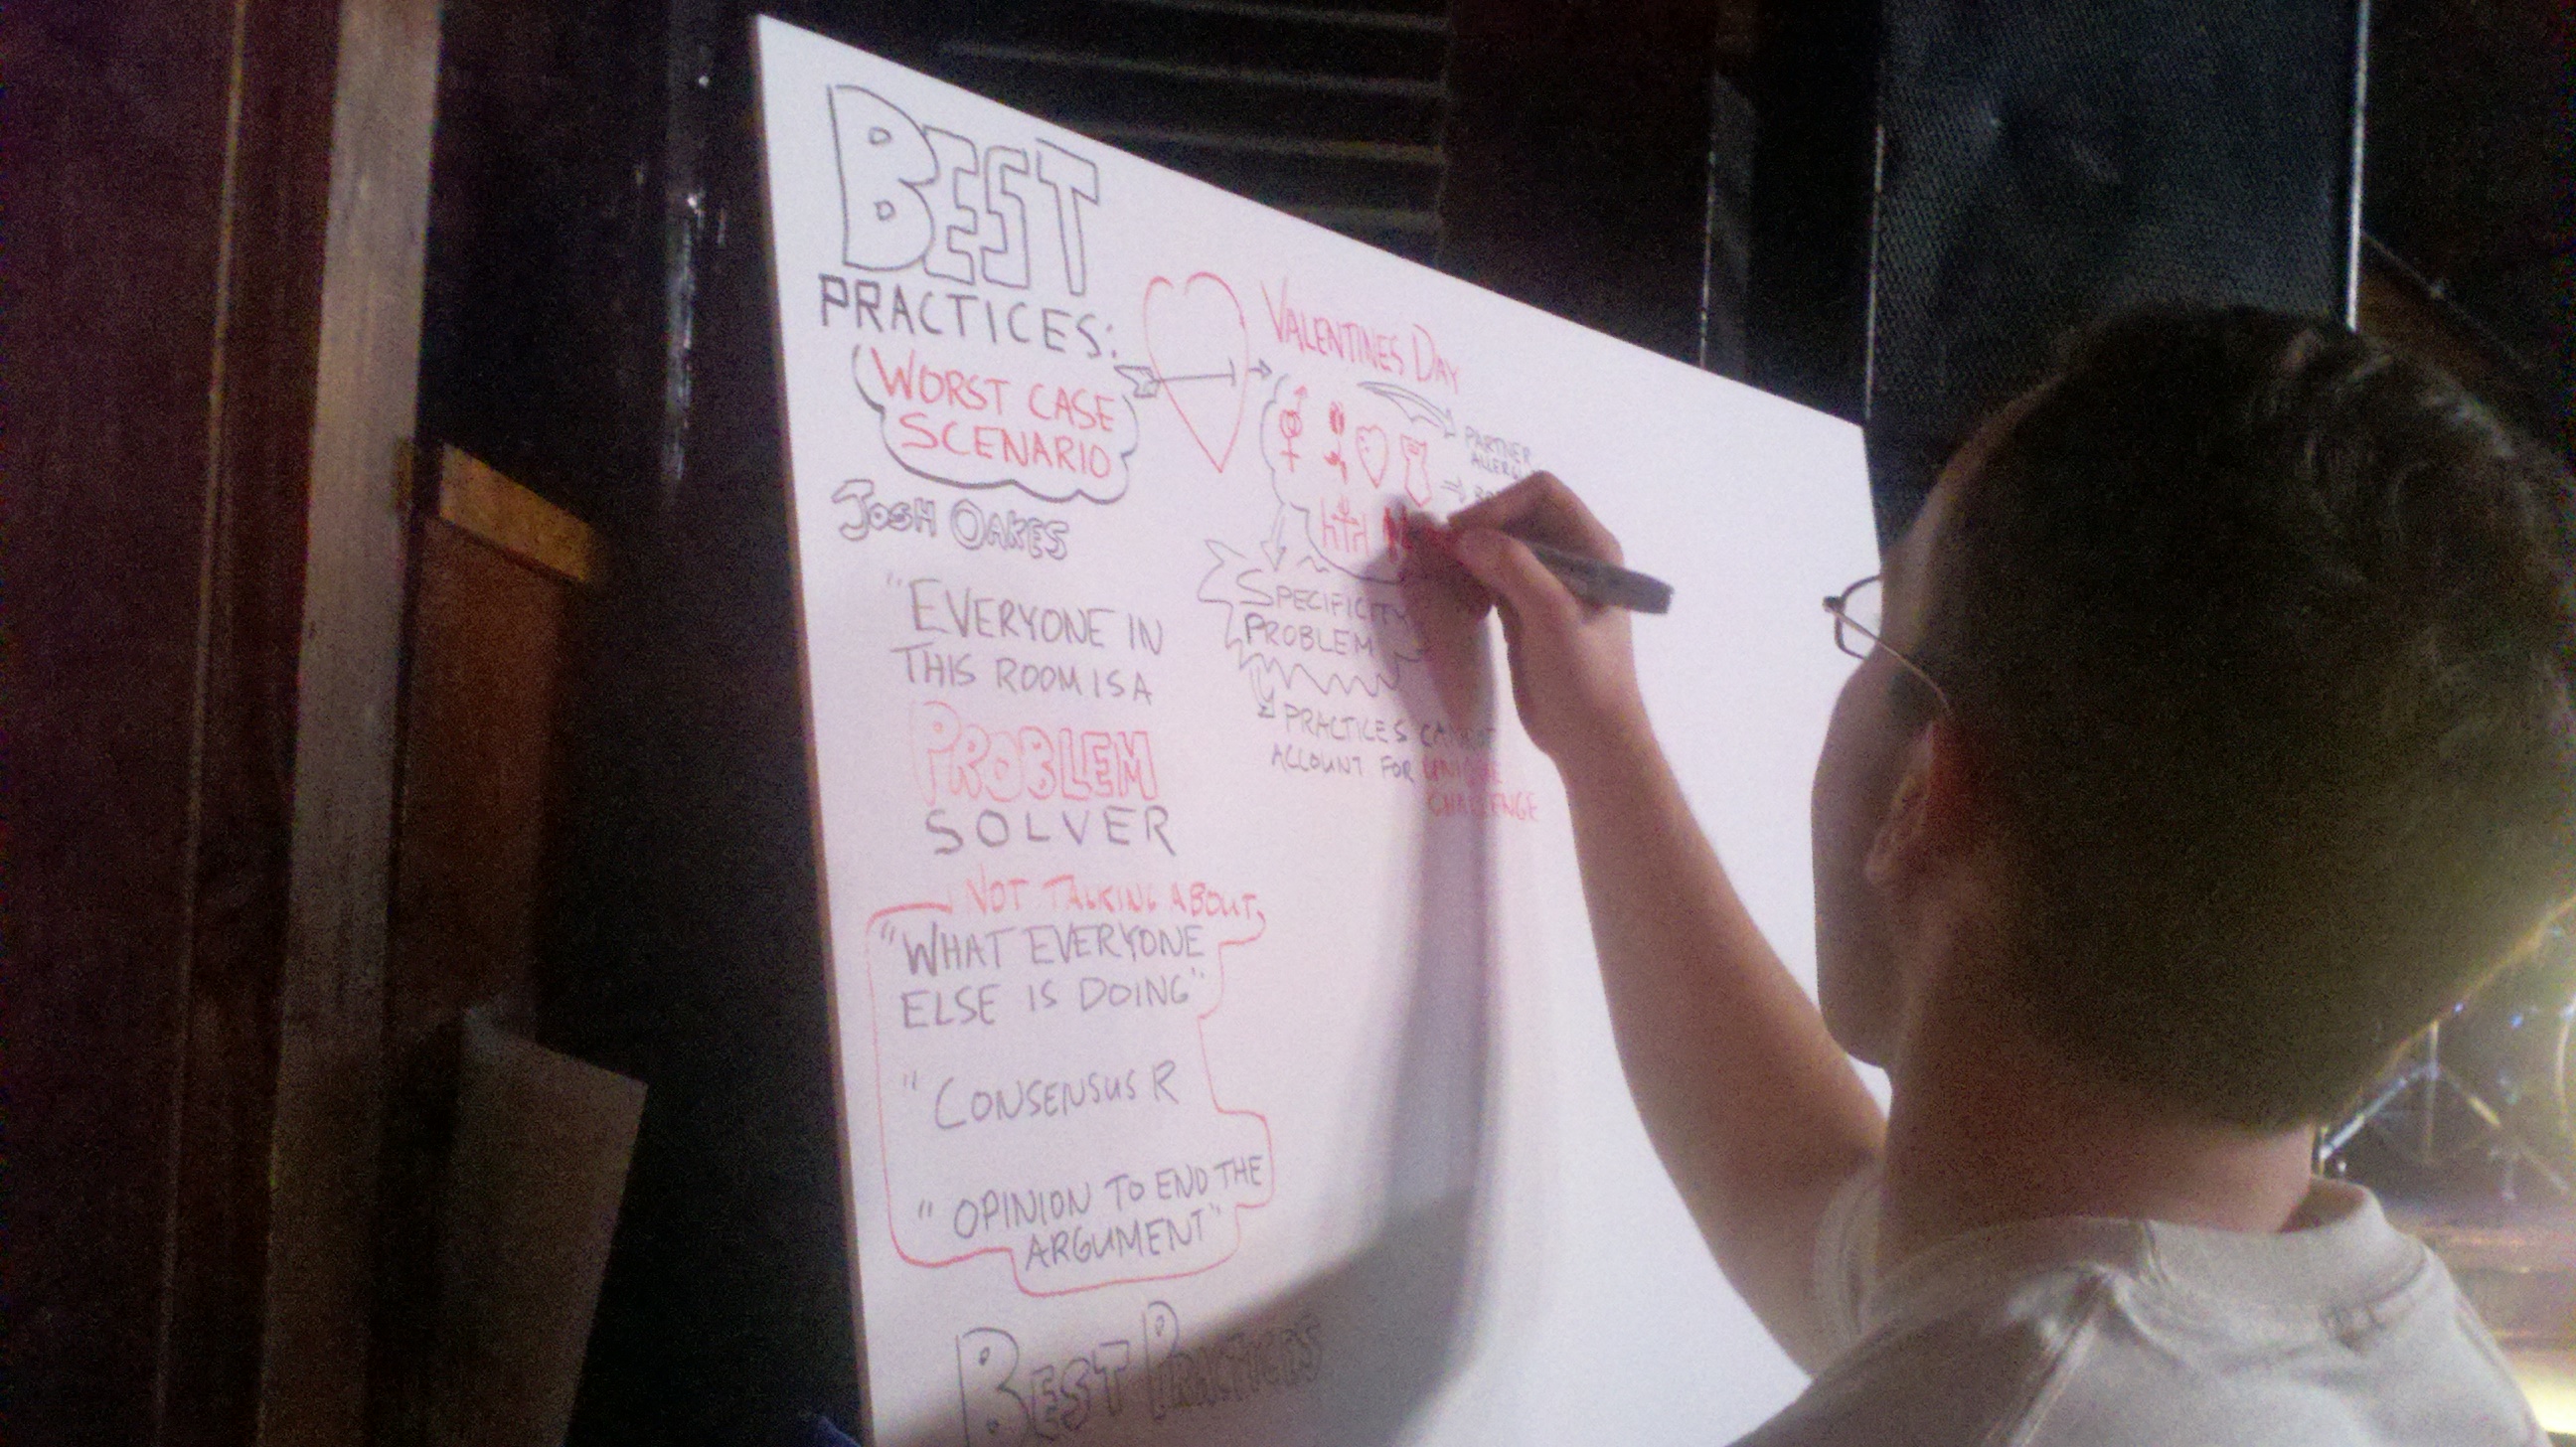 BEST
PRACTICES:
WORST CASE
SCENARIO
JOSH OAKES
"EVERYONE IN
THIS ROOM IS A
PROBLEM
SOLVER
NOT TALKING ABOUT
"WHAT EVERYONE
ELSE IS DOING"
"CONSENSUS R
"OPINION TO END THE
ARGUMENT"
BEST PRACTICES
VALENTINES DAY
PARTNER
SPECIFICITY
PROBLEM
PRACTICES CANNOT
ACCOUNT FOR UNIQUE
CHALLENGE